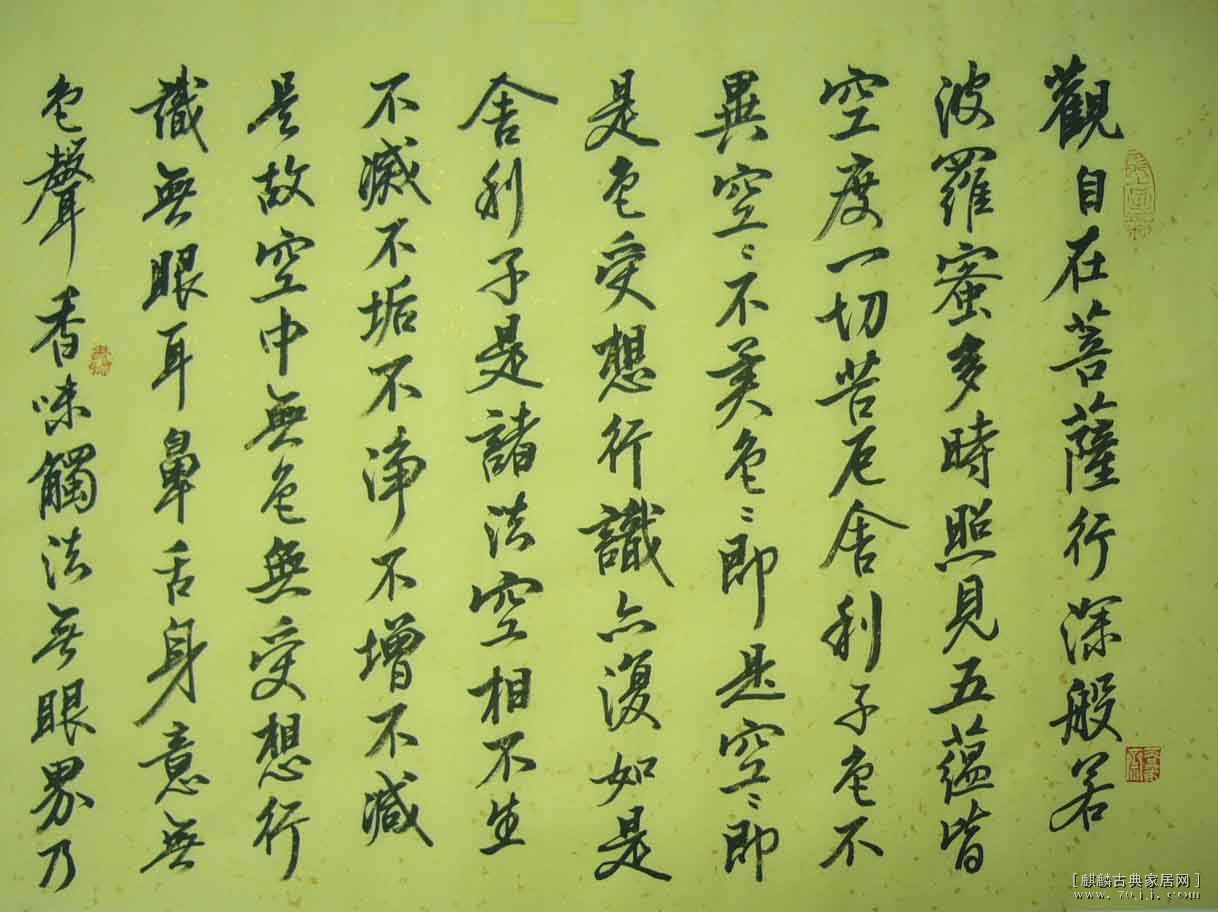 觀自在菩薩行深般若
波羅蜜多時照見五蘊皆
空度一切苦厄舍利子色不
異空〻不異色〻即是空〻即
是色受想行識亦復如是
舍利子是諸法空相不生
不滅不垢不淨不增不減
是故空中無色無受想行
識無眼耳鼻舌身意無
色聲香味觸法無眼界乃
[麒麟古典家居网]
www.70jj.com